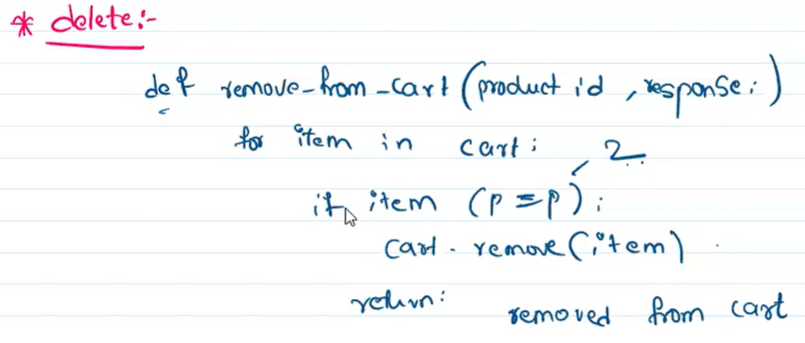 * delete:-
def remove-from-cart (product id, response:)
for item in cart: 2
if item (p = p):
cart. remove (item)
return: removed from cart